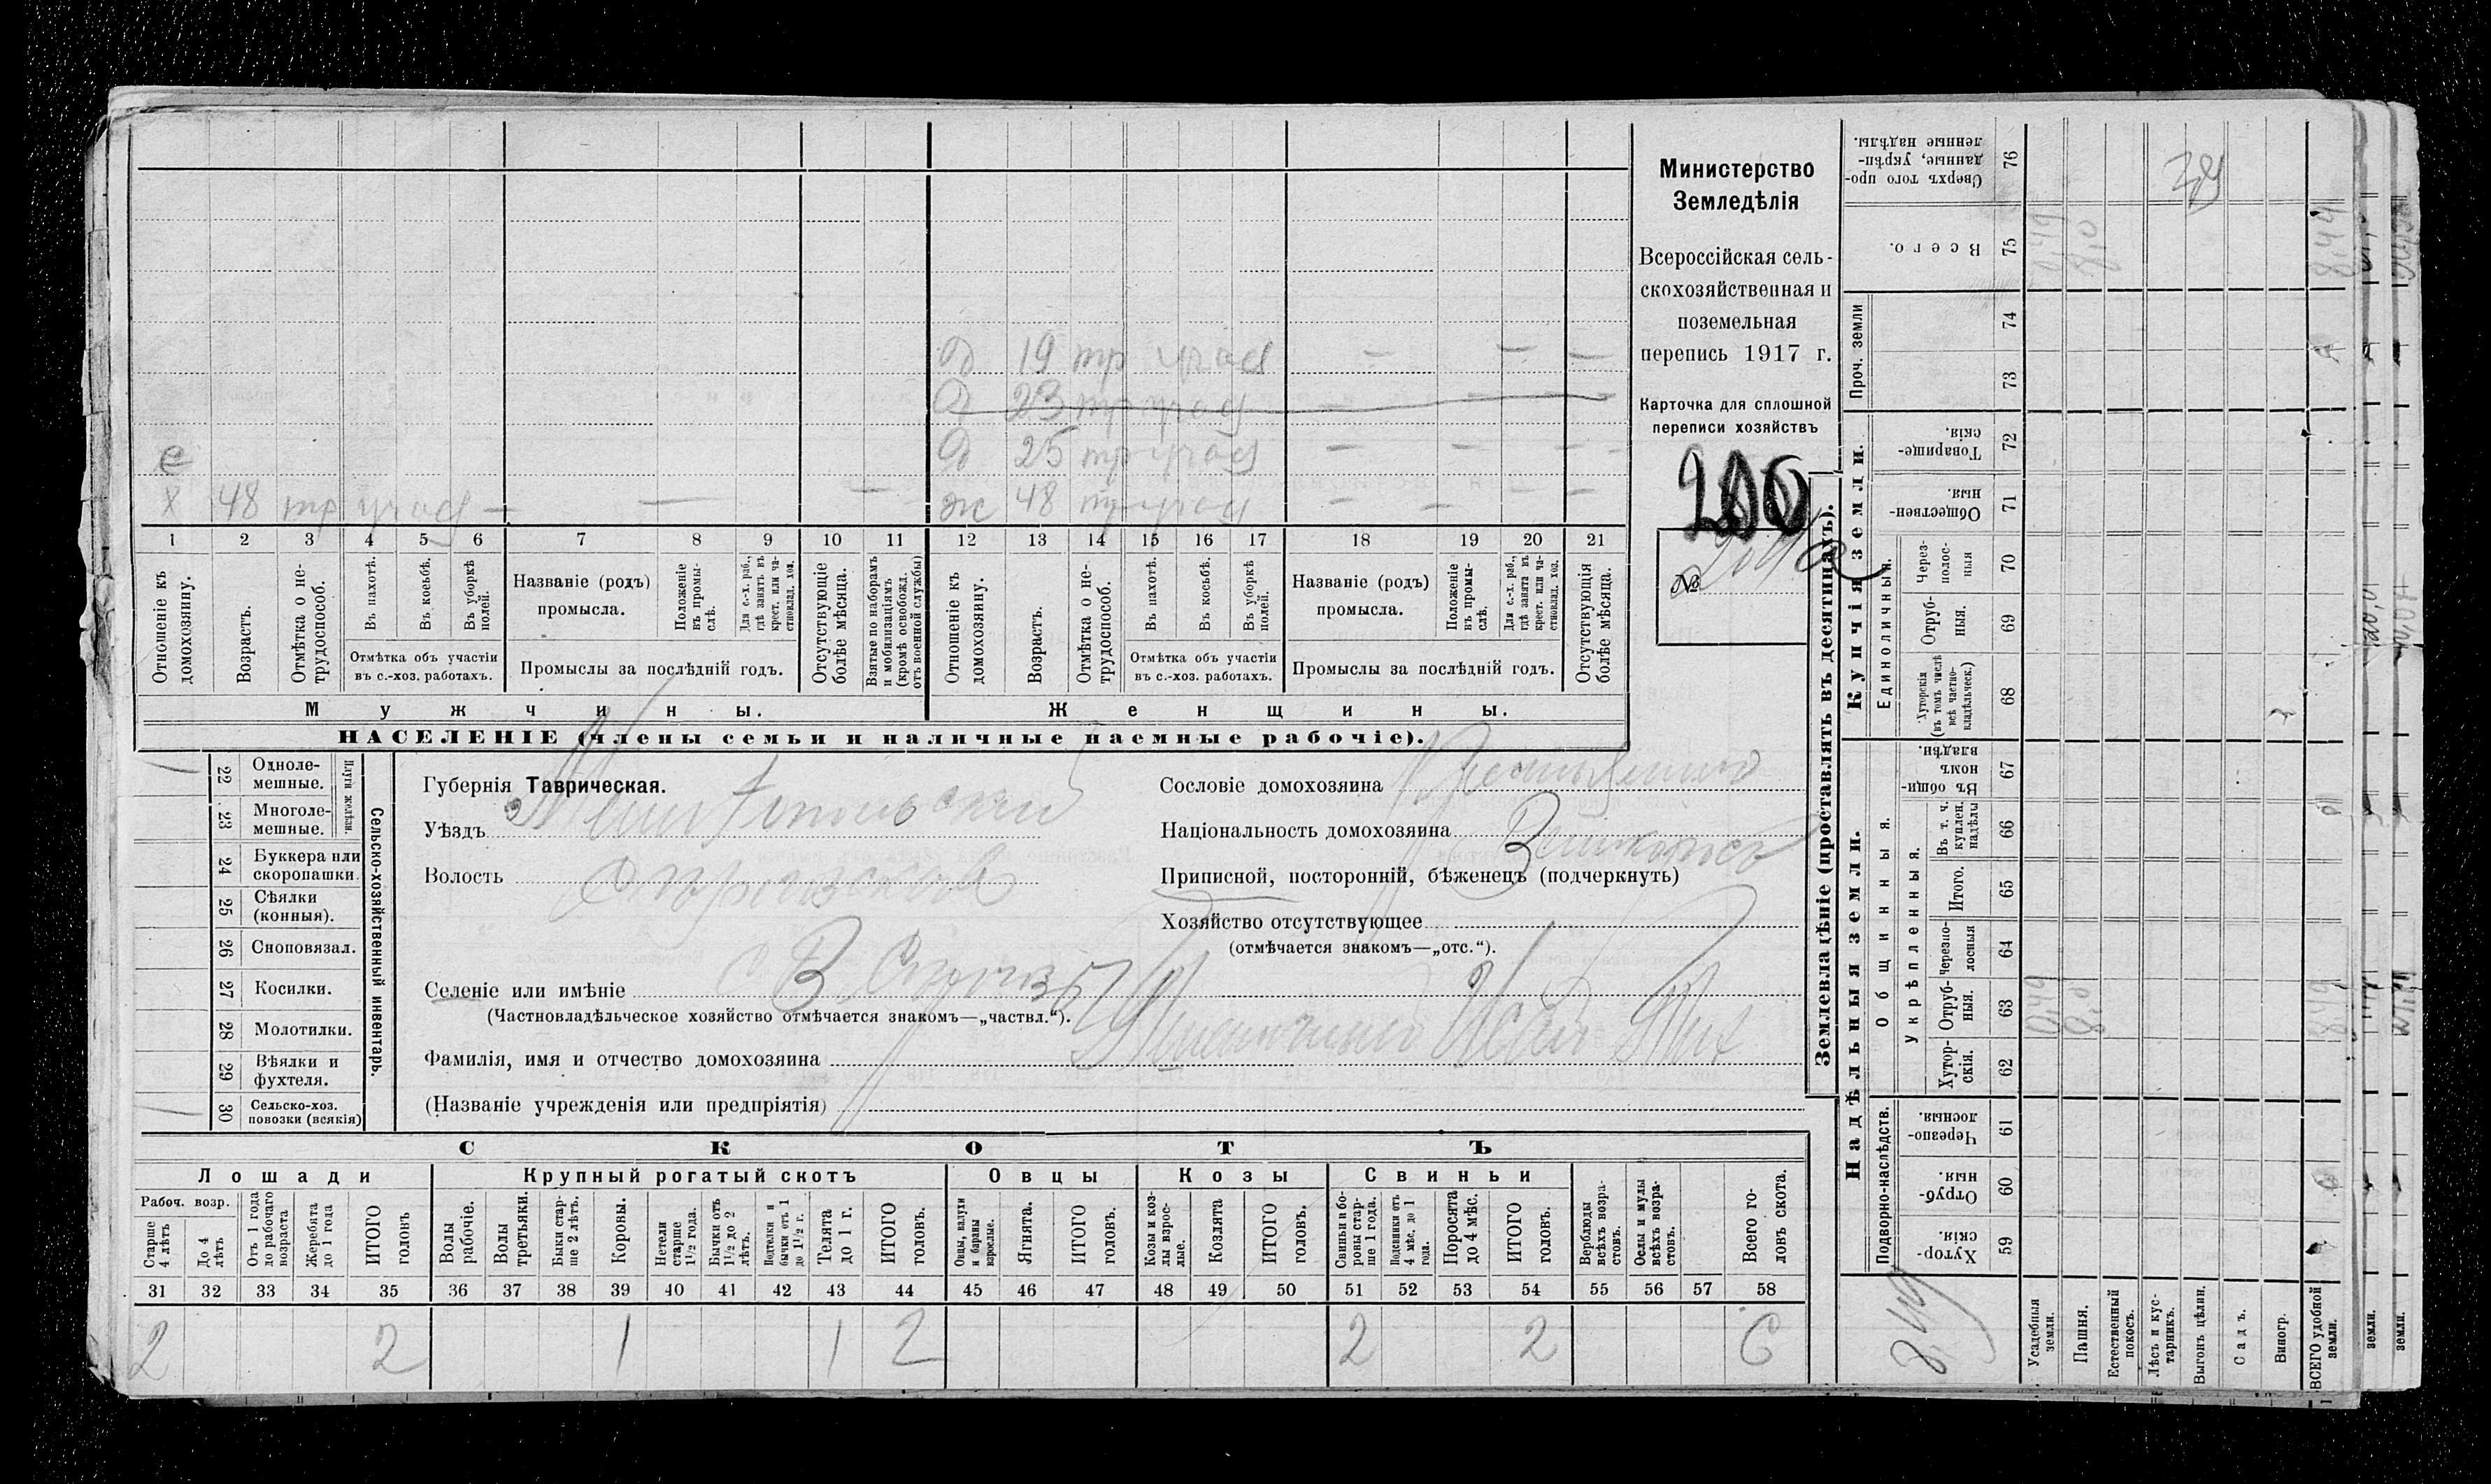 Министерство
Земледѣлія
Всероссійская сель-
скохозяйственная и
поземельная
перепись 1917 г.
Карточка для сплошной
переписи хозяйствъ
200
№ 204а
д 19 тр участ — — —
д 23 тр участ — — —
д 25 тр участ — — —
х 48 тр участ — — —
ж 48 тр участ — — —
1 2 3 4 5 6 7 8 9 10 11 12 13 14 15 16 17 18 19 20 21
Отношеніе къ домохозяину.
Возрастъ.
Отмѣтка о не-трудоспособ.
Въ пахотѣ.
Въ косьбѣ.
Въ уборкѣ полей.
Отмѣтка объ участіи
въ с.-хоз. работахъ.
Названіе (родъ)
промысла.
Положеніе въ промы-слѣ.
Для с.-х. раб., гдѣ занятъ въ крест. или ча-стновлад. хоз.
Промыслы за послѣдній годъ.
Отсутствующіе болѣе мѣсяца.
Взятые по наборамъ и мобилизаціямъ (кромѣ освобожд. отъ военной службы)
Отношеніе къ домохозяину.
Возрастъ.
Отмѣтка о не-трудоспособ.
Въ пахотѣ.
Въ косьбѣ.
Въ уборкѣ полей.
Отмѣтка объ участіи
въ с.-хоз. работахъ.
Названіе (родъ)
промысла.
Положеніе въ промы-слѣ.
Для с.-х. раб., гдѣ занята въ крест. или ча-стновлад. хоз.
Промыслы за послѣдній годъ.
Отсутствующія болѣе мѣсяца.
Мужчины. Женщины.
НАСЕЛЕНІЕ (члены семьи и наличные наемные рабочіе).
22 Одноле-мешные.
23 Многоле-мешные.
Плуги желѣзн.
24 Буккера или скоропашки.
25 Сѣялки (конныя).
26 Сноповязал.
27 Косилки.
28 Молотилки.
29 Вѣялки и фухтеля.
30 Сельско-хоз. повозки (всякія)
Сельско-хозяйственный инвентарь.
Губернія Таврическая.
Уѣздъ Мелитопольский
Волость
Селеніе или имѣніе с В.
(Частновладѣльческое хозяйство отмѣчается знакомъ—„частвл.“).
Фамилія, имя и отчество домохозяина
(Названіе учрежденія или предпріятія)
Сословіе домохозяина
Національность домохозяина
Приписной, посторонній, бѣженецъ (подчеркнуть)
Хозяйство отсутствующее
(отмѣчается знакомъ—„отс.“).
СКОТЪ
Лошади Крупный рогатый скотъ Овцы Козы Свиньи
Рабоч. возр.
Старше 4 лѣтъ
До 4 лѣтъ
Отъ 1 года до рабочаго возраста
Жеребята до 1 года
ИТОГО головъ
Волы рабочіе.
Волы третьяки.
Быки стар-ше 2 лѣтъ.
Коровы.
Нетели старше 1½ года.
Бычки отъ 1½ до 2 лѣтъ.
Подтелки и бычки отъ 1 до 1½ г.
Телята до 1 г.
ИТОГО головъ.
Овцы, валухи и бараны взрослые.
Ягнята.
ИТОГО головъ.
Козы и коз-лы взрос-лые.
Козлята
ИТОГО головъ.
Свиньи и бо-ровы стар-ше 1 года.
Подсвинки отъ 4 мѣс. до 1 года.
Поросята до 4 мѣс.
ИТОГО головъ.
Верблюды всѣхъ возра-стовъ.
Ослы и мулы всѣхъ возра-стовъ.
Всего го-ловъ скота.
31 32 33 34 35 36 37 38 39 40 41 42 43 44 45 46 47 48 49 50 51 52 53 54 55 56 57 58
2 2 1 1 2 2 2 6
Землевладѣніе (проставлять въ десятинахъ).
Надѣльныя земли. Купчія земли.
Проч. земли
Подворно-наслѣдств.
Общинныя.
Укрѣпленныя.
Единоличныя.
Хутор-скія. 59
Отруб-ныя. 60
Черезпо-лосныя 61
Хутор-скія. 62
Отруб-ныя. 63
Черезпо-лосныя 64
Итого. 65
Въ т. ч. куплен. надѣлы 66
Въ общин-номъ владѣн. 67
Хуторскія (въ томъ числѣ всѣ частно-владѣльческ.) 68
Отруб-ныя. 69
Через-полос-ныя 70
Обществен-ныя. 71
Товарище-скія. 72
73
74
Всего. 75
Сверхъ того про-данные, укрѣп-ленные надѣлы. 76
Усадебныя земли. 0,49 0,49
Пашня. 8,0 8,0
Естественный покосъ.
Лѣсъ и кус-тарникъ.
Выгонъ цѣлин.
Садъ.
Виногр.
ВСЕГО удобной земли. 8,49 8,49
земли.
земли.
8,49